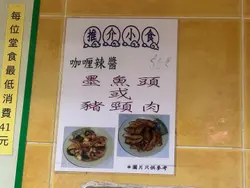 每位堂食最低消費41元
推介小食
咖喱辣醬
墨魚頭
或
豬頸肉
*圖片只供參考